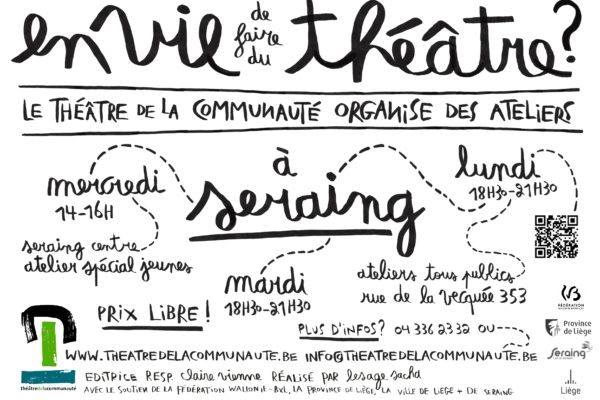 en vie de faire du théâtre?
LE THÉÂTRE DE LA COMMUNAUTÉ ORGANISE DES ATELIERS
à
seraing
mercredi
14-16H
seraing centre
atelier spécial jeunes
lundi
18H30-21H30
mardi
18H30-21H30
ateliers tous publics
rue de la vecquée 353
PRIX LIBRE!
PLUS D'INFOS? 04 336 23 32 OU
WWW.THEATREDELACOMMUNAUTE.BE INFO@THEATREDELACOMMUNAUTE.BE
EDITRICE RESP. claire vienne RÉALISÉ PAR lesage sacha
AVEC LE SOUTIEN DE LA FÉDÉRATION WALLONIE-BXL, LA PROVINCE DE LIÈGE, LA VILLE DE LIEGE + DE SERAING
théâtredelacommunauté
FÉDÉRATION
WALLONIE-BRUXELLES
Province
de Liège
Seraing
Liège